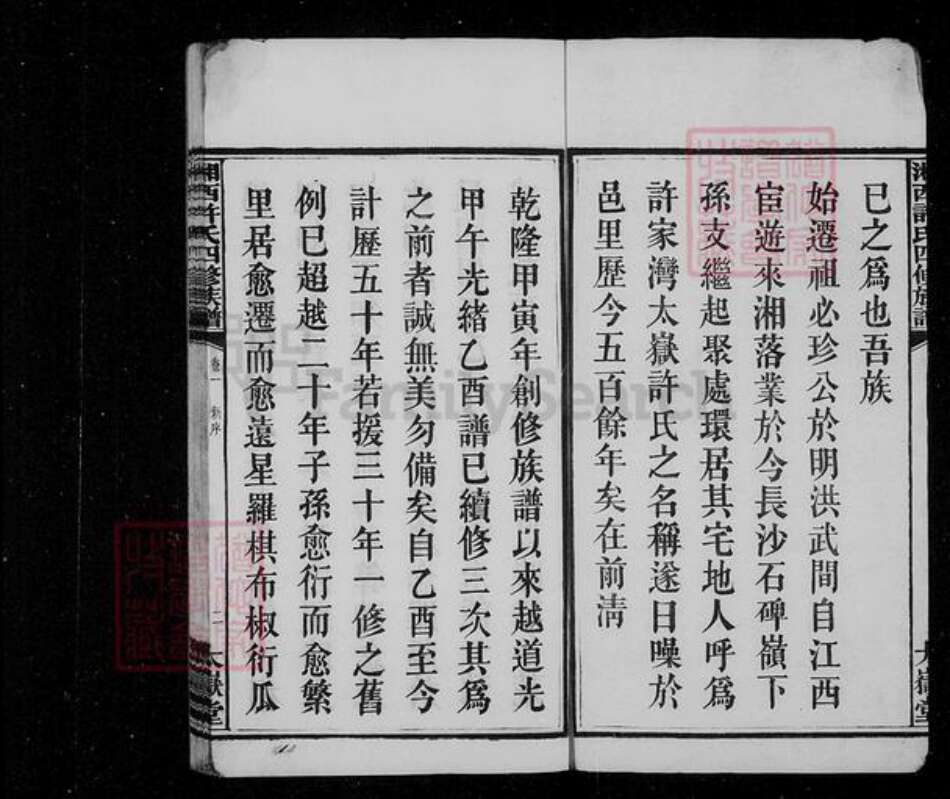 已之爲也吾族
始遷祖必珍公於明洪武間自江西
宦遊來湘落業於今長沙石碑嶺下
孫支繼起聚處環居其宅地人呼爲
許家灣太嶽許氏之名稱遂日噪於
邑里歷今五百餘年矣在前淸
乾隆甲寅年創修族譜以來越道光
甲午光緒乙酉譜已續修三次其爲
之前者誠無美勿備矣自乙酉至今
計歷五十年若援三十年一修之舊
例已超越二十年子孫愈衍而愈繁
里居愈遷而愈遠星羅棋布椒衍瓜
湘西許氏四修族譜
卷一
新序
二
太嶽堂
FamilySearch